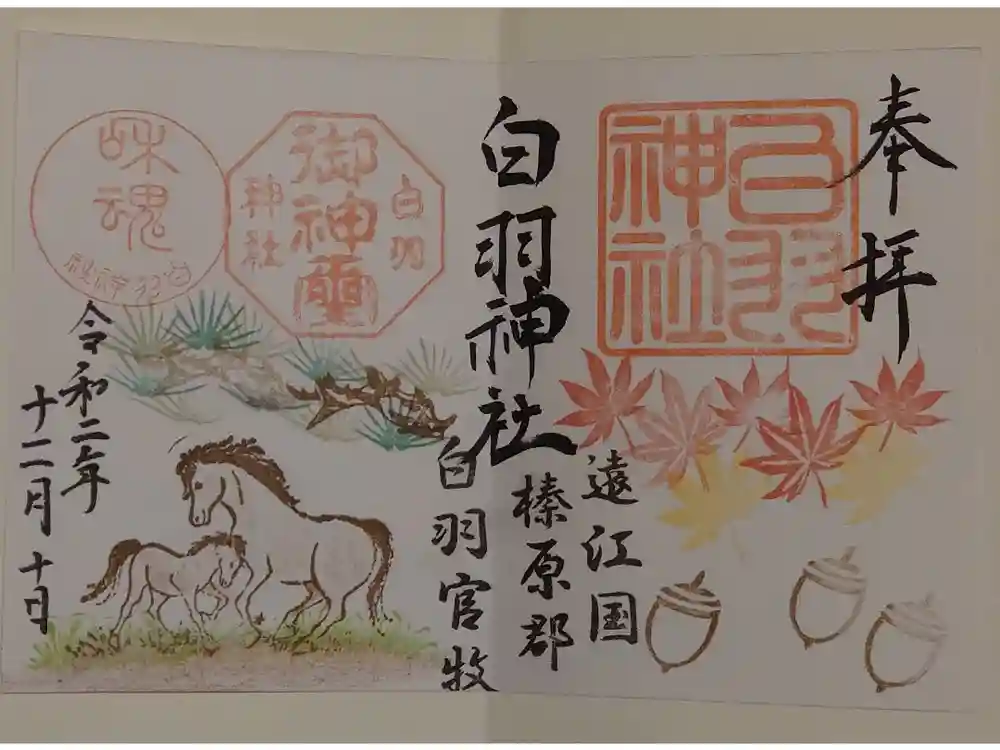 奉拝
白羽神社
遠江国
榛原郡
白羽神社
白羽官牧
白羽
御神霊
神社
和魂
白羽神社
令和二年
十二月十日